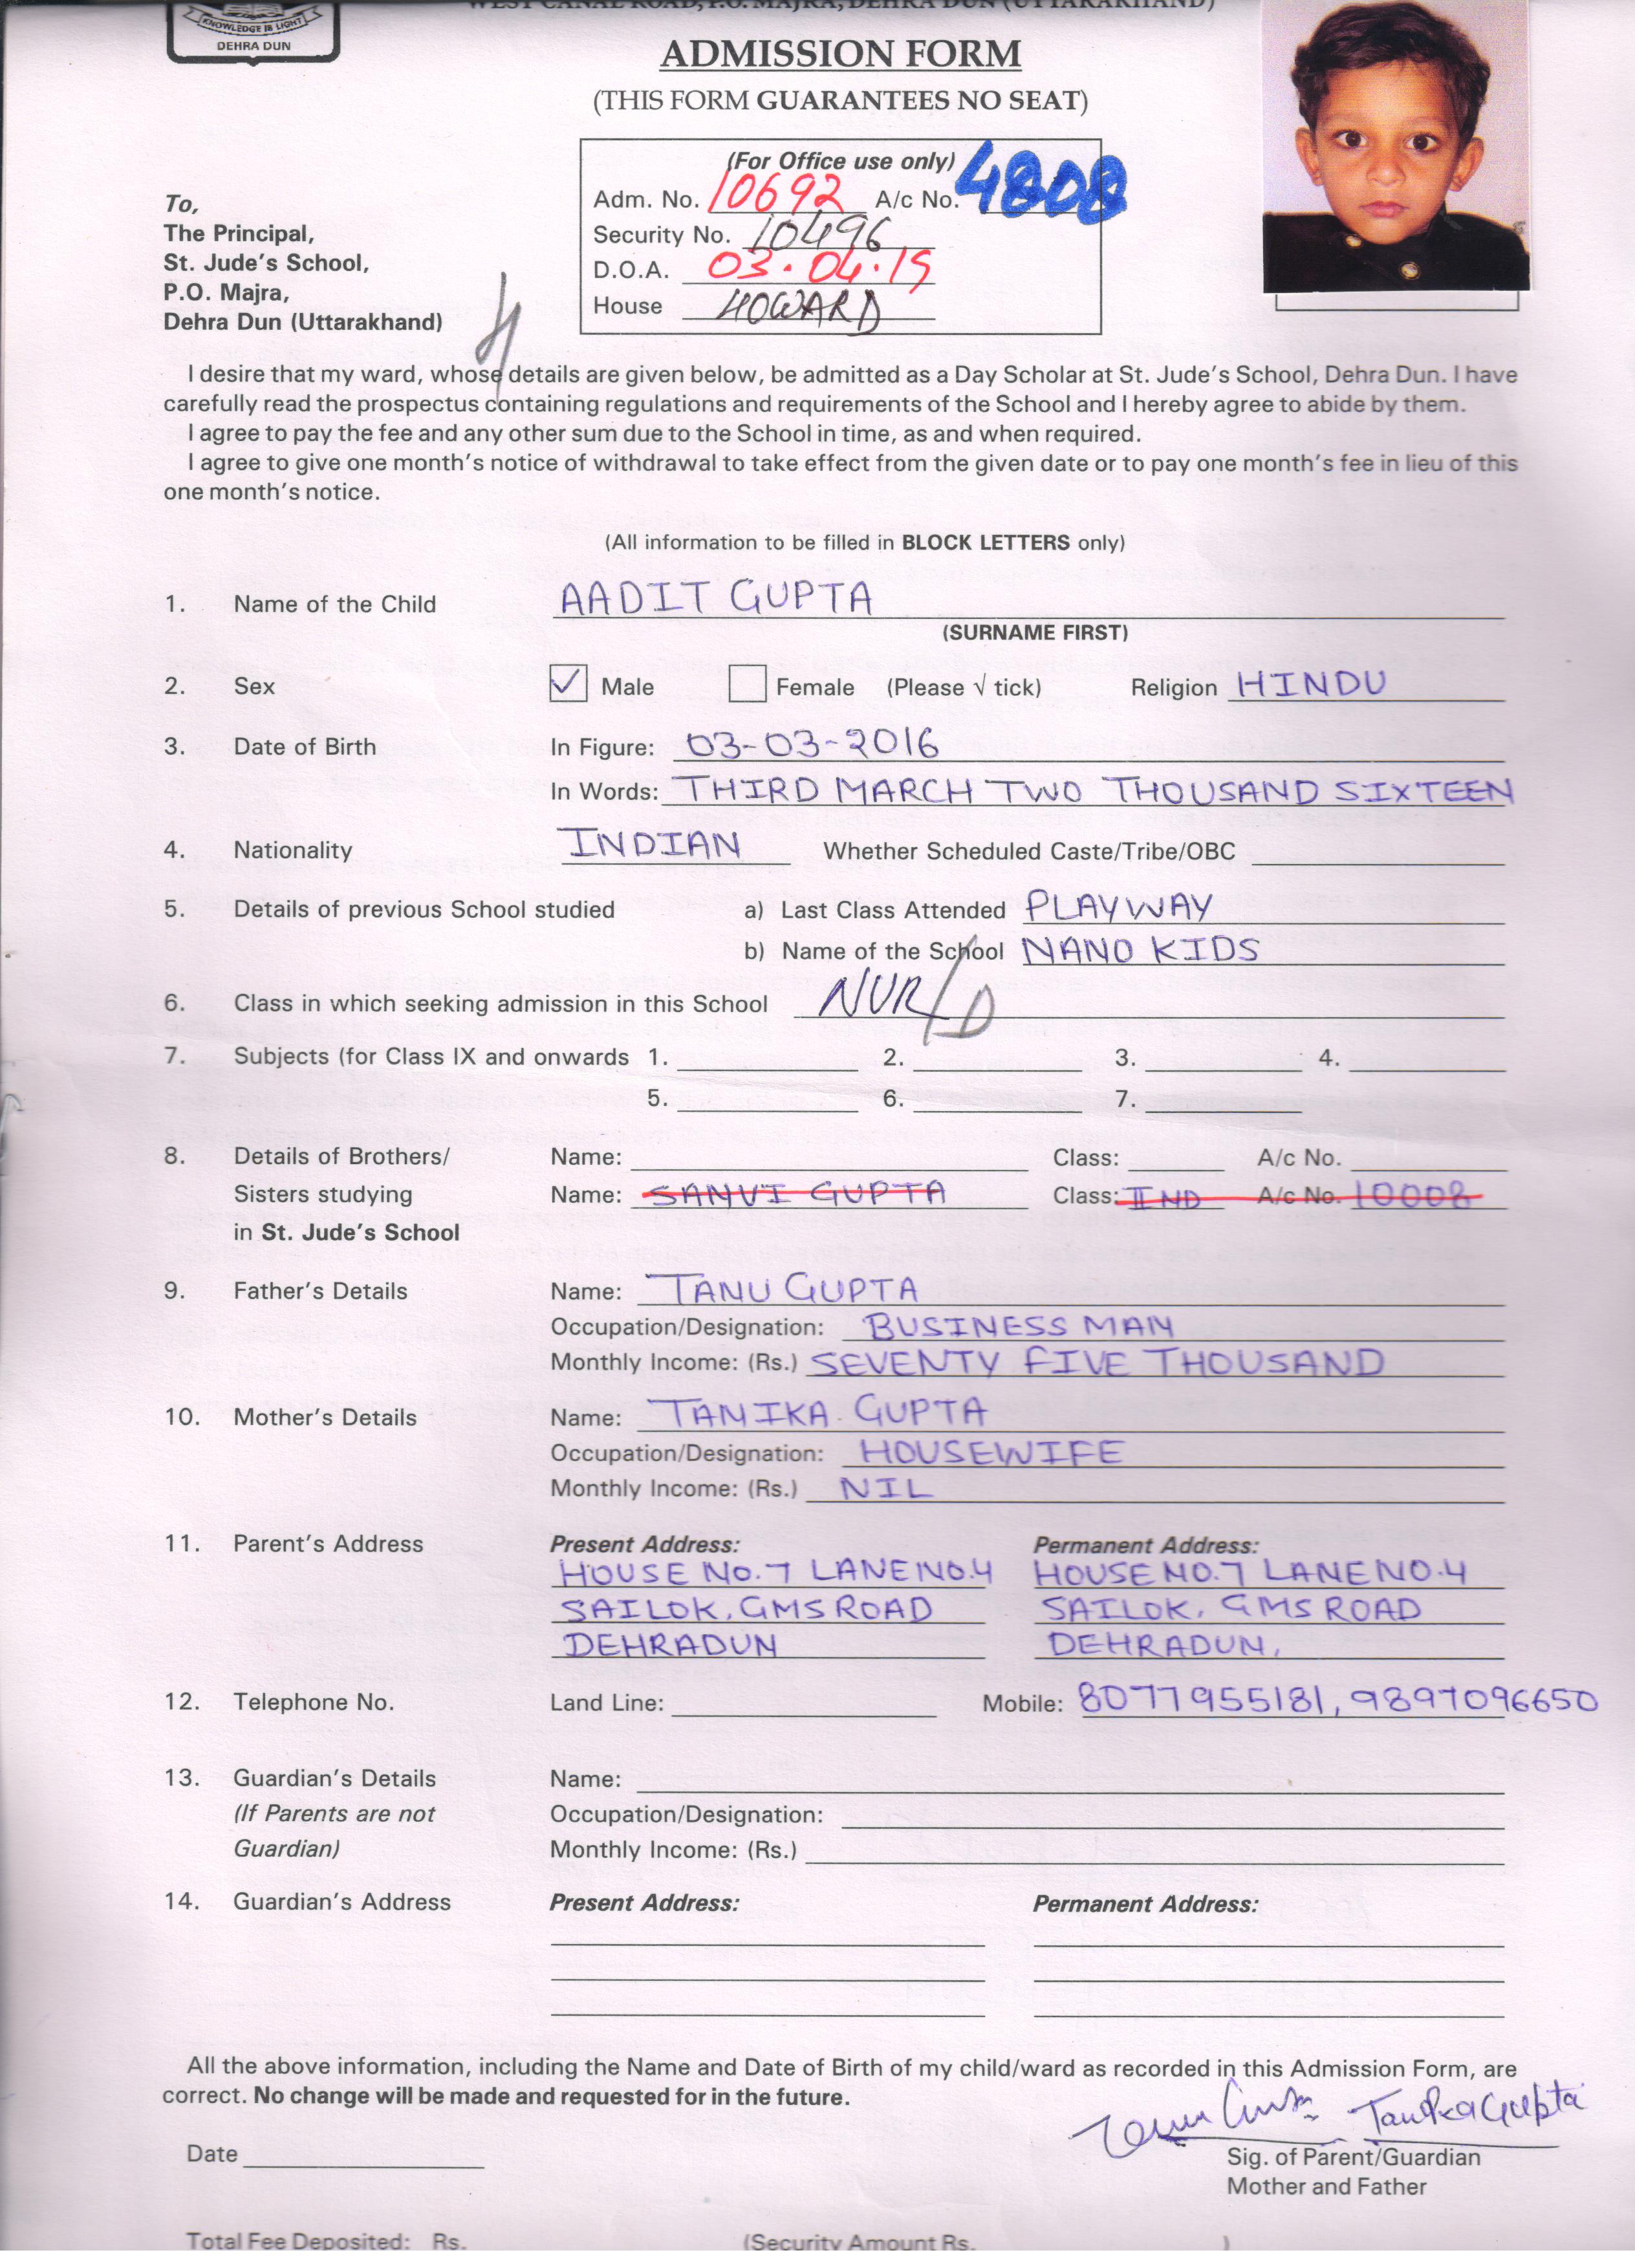 WEST CANAL ROAD, P.O. MAJRA, DEHRA DUN (UTTARAKHAND)
KNOWLEDGE IS LIGHT
DEHRA DUN
ADMISSION FORM
(THIS FORM GUARANTEES NO SEAT)
(For Office use only)
Adm. No. 10692 A/c No. 4808
Security No. 10496
D.O.A. 03.04.19
House HOWARD
To,
The Principal,
St. Jude's School,
P.O. Majra,
Dehra Dun (Uttarakhand)
I desire that my ward, whose details are given below, be admitted as a Day Scholar at St. Jude's School, Dehra Dun. I have
carefully read the prospectus containing regulations and requirements of the School and I hereby agree to abide by them.
I agree to pay the fee and any other sum due to the School in time, as and when required.
I agree to give one month's notice of withdrawal to take effect from the given date or to pay one month's fee in lieu of this
one month's notice.
(All information to be filled in BLOCK LETTERS only)
1. Name of the Child AADIT GUPTA
(SURNAME FIRST)
2. Sex ✓ Male Female (Please √ tick) Religion HINDU
3. Date of Birth In Figure: 03-03-2016
In Words: THIRD MARCH TWO THOUSAND SIXTEEN
4. Nationality INDIAN Whether Scheduled Caste/Tribe/OBC
5. Details of previous School studied a) Last Class Attended PLAYWAY
b) Name of the School NANO KIDS
6. Class in which seeking admission in this School NUR/D
7. Subjects (for Class IX and onwards 1. 2. 3. 4.
5. 6. 7.
8. Details of Brothers/ Name: Class: A/c No.
Sisters studying Name: SANVI GUPTA Class: IIND A/c No. 10008
in St. Jude's School
9. Father's Details Name: TANU GUPTA
Occupation/Designation: BUSINESS MAN
Monthly Income: (Rs.) SEVENTY FIVE THOUSAND
10. Mother's Details Name: TANIKA GUPTA
Occupation/Designation: HOUSEWIFE
Monthly Income: (Rs.) NIL
11. Parent's Address Present Address: Permanent Address:
HOUSE NO.7 LANE NO.4 HOUSE NO.7 LANE NO.4
SAILOK, GMS ROAD SAILOK, GMS ROAD
DEHRADUN DEHRADUN,
12. Telephone No. Land Line: Mobile: 8077955181, 9897096650
13. Guardian's Details Name:
(If Parents are not Occupation/Designation:
Guardian) Monthly Income: (Rs.)
14. Guardian's Address Present Address: Permanent Address:
All the above information, including the Name and Date of Birth of my child/ward as recorded in this Admission Form, are
correct. No change will be made and requested for in the future.
Tanika Gupta
Date Sig. of Parent/Guardian
Mother and Father
Total Fee Deposited: Rs. (Security Amount Rs. )